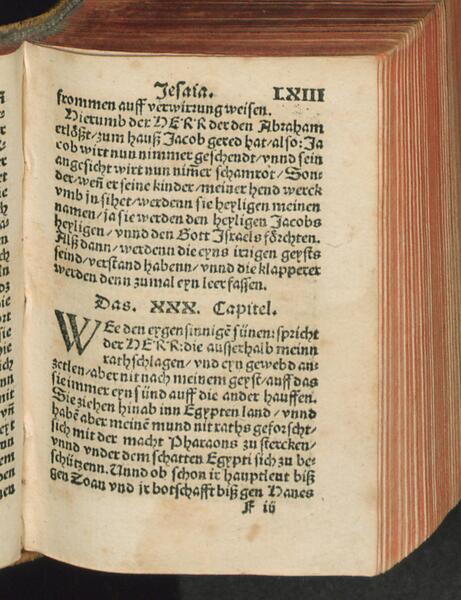 Jesaia. LXIII
frommen auff verwirrung weisen.
Hierumb der HERR der den Abraham
erlößt/zum hauß Jacob gered hat/also: Ja
cob wirt nun nimmer geschendt/vnnd sein
angesicht wirt nun nim̃er schamrot/Son-
der/weñ er seine kinder/meiner hend werck
vmb jn sihet/werdenn sie heyligen meinen
namen/ja sie werden den heyligen Jacobs
heyligen/vnnd den Gott Jsraels förchten.
Alß dann/werdenn die eyns irrigen geysts
seind/verstand habenn/vnnd die klapperer
werden denn zumal eyn leer fassen.
Das. XXX. Capitel.
WEe den eygensinnigẽ sünen: spricht
der HERR: die ausserhalb meinn
rathschlagen/vnd eyn gewebd an-
zetlen/aber nit nach meinem geyst/auff das
sie immer eyn sünd auff die ander hauffen.
Sie ziehen hinab inn Egypten land/vnnd
habẽ aber meinẽ mund nit raths geforscht/
sich mit der macht Pharaons zu stercken/
vnnd vnder dem schatten Egypti sich zu be-
schützenn. Vnnd ob schon ir hauptleut biß
gen Zoan vnd jr botschafft biß gen Hanes
F iij